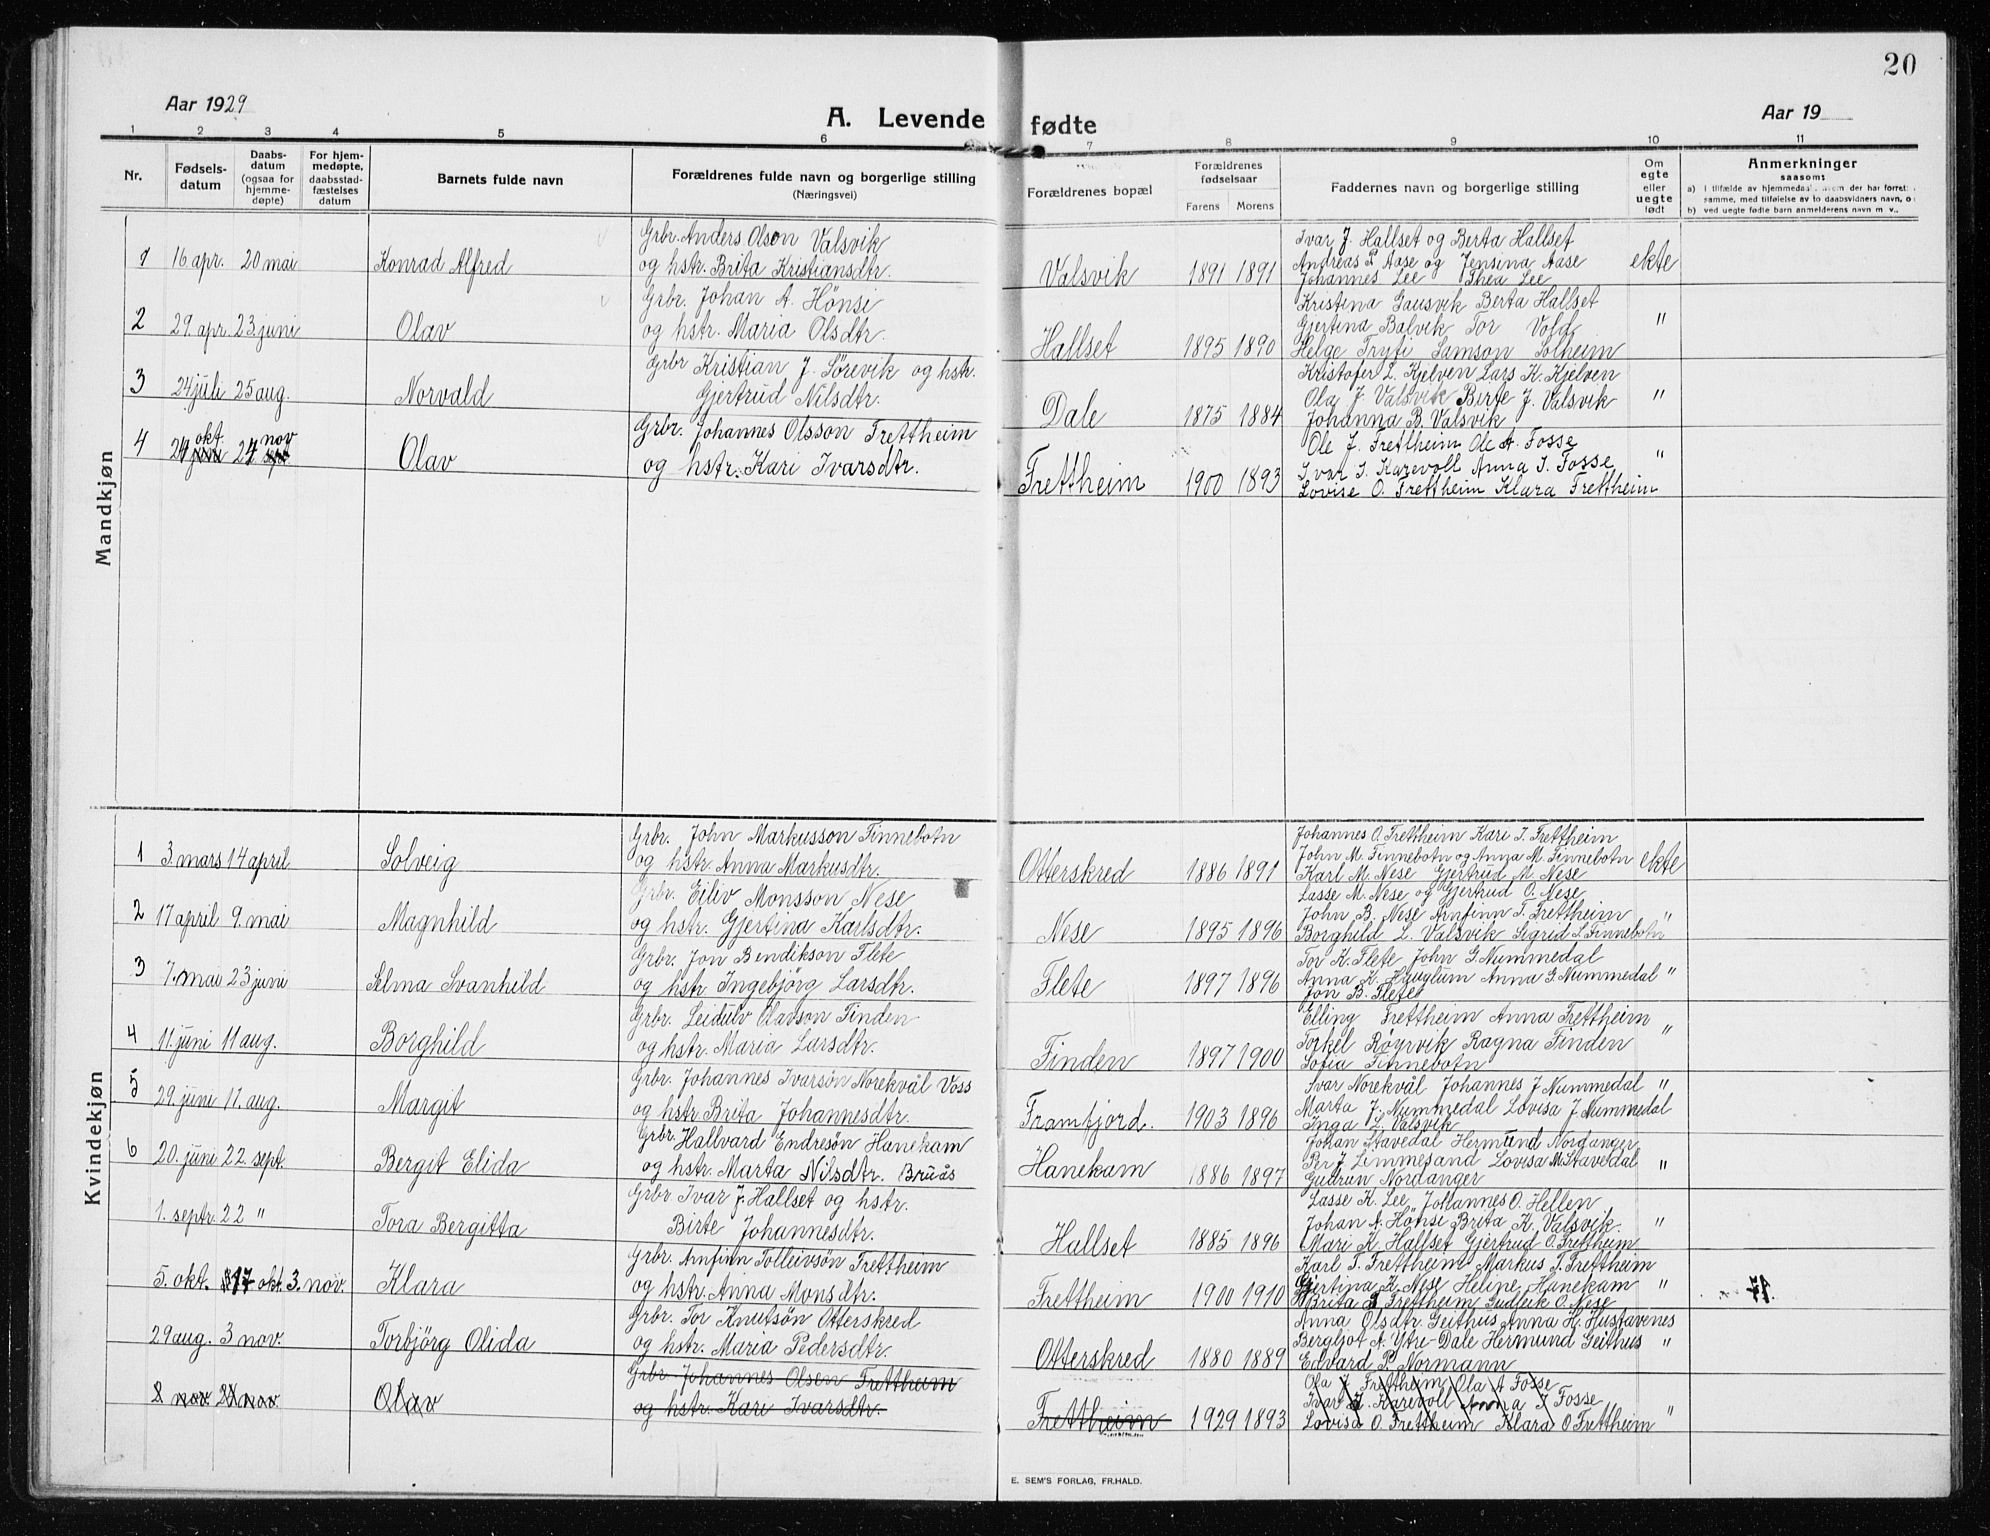 20
Aar 1929
A. Levende fødte
Aar 19
1 2 3 4 5 6 7 8 9 10 11
Nr.
Fødsels-
datum
Daabs-
datum
(ogsaa for
hjemme-
døpte)
For hjem-
medøpte,
daabsstad-
fæstelses
datum
Barnets fulde navn
Forældrenes fulde navn og borgerlige stilling
(Næringsvei)
Forældrenes bopæl
Forældrenes
fødselsaar
Farens Morens
Faddernes navn og borgerlige stilling
Om
egte
eller
uegte
født
Anmerkninger
saasom:
a) I tilfælde av hjemmedaab, hvem der har forret
samme, med tilføielse av to daabsvidners navn, o
b) ved uegte fødte barn anmelderens navn m. v.,
Mandkjøn
1 16 apr. 20 mai Konrad Alfred
Grbr. Anders Olson Valsvik
og hstr. Brita Kristiansdtr.
Valsvik 1891 1891
Ivar J. Hallset og Berta Hallset
Andreas P. Aase og Jensina Aase
Johannes Lee Thea Lee
ekte
2 29. apr. 23. juni Olav
Grbr. Johan A. Hønsi
og hstr. Maria Olsdtr.
Hallset 1895 1890
Kristina Gausvik Berta Hallset
Gjertina Balvik Tor Vold
Helge Tryti Samson Solheim
"
3 24 juli 25 aug. Norvald
Grbr Kristian J. Sørevik og hstr.
Gjertrud Nilsdtr.
Dale 1875 1884
Kristofer L. Kjelven Lars K. Kjelven
Ola J. Valsvik Birte J. Valsvik
Johanna B. Valsvik
"
4 24 okt. 24 nov Olav
Grbr. Johannes Olsson Frettheim
og hstr. Kari Ivarsdtr.
Frettheim 1900 1893
Ole J. Frettheim Ole A. Fosse
Ivar I. Karevoll Anna I. Fosse
Lovise O. Frettheim Klara Frettheim
"
Kvindekjøn
1 3. mars 14 april Solveig
Grbr. John Markusson Finnebotn
og hstr. Anna Markusdtr.
Otterskred 1886 1891
Johannes O. Frettheim Kari I. Frettheim
John M. Finnebotn og Anna M. Finnebotn
Karl M. Nese Gjertrud M. Nese
ekte
2 17 april 9. mai Magnhild
Grbr. Eiliv Monsson Nese
og hstr. Gjertina Karlsdtr.
Nese 1895 1896
Lasse M. Nese og Gjertrud O. Nese
John B. Nese Arnfinn T. Frettheim
Borghild L. Valsvik Sigrid L. Finnebotn
"
3 7. mai 23 juni Selma Svanhild
Grbr. Jon Bendikson Flete
og hstr Ingebjörg Larsdtr.
Flete 1897 1896
Tor K. Flete John G. Nummedal
Anna K. Hauglum Anna G. Nummedal
Jon B. Flete
"
4 11. juni 11 aug. Borghild
Grbr. Leidulv Olavson Finden
og hstr. Maria Larsdtr.
Finden 1897 1900
Elling Frettheim Anna Frettheim
Torkel Røyrvik Ragna Finden
Sofia Finnebotn
"
5 29 juni 11. aug. Margit
Grbr. Johannes Ivarsøn Norekvål Voss
og hstr Brita Johannesdtr.
Framfjord. 1903 1896
Ivar Norekvål Johannes J Nummedal
Marta J. Nummedal Lovisa J. Nummedal
Inga L. Valsvik
"
6 20. juni 22. sept. Bergit Elida
Grbr. Hallvard Endresøn Hanekam
og hstr. Marta Nilsdtr. Bruås
Hanekam 1886 1897
Johan Stavedal Hermund Nordanger
Per J. Limmesand Lovisa M. Stavedal
Gudrun Nordanger
"
1. septr. 22 " Tora Bergitta
Grbr Ivar J. Hallset og hstr.
Birte Johannesdtr.
Hallset 1885 1896
Lasse K. Lee, Johannes O. Hellen
Johan A. Hønsi Brita K. Valsvik
Mari K. Hallset Gjertrud O. Frettheim
"
5. okt. 17 okt. 3. nov. Klara
Grbr. Arnfinn Tolleivsøn Frettheim
og hstr. Anna Monsdtr.
Frettheim 1900 1910
Karl T. Frettheim Markus T. Frettheim
Gjertina K. Nese Heline Hanekam
Brita Frettheim Gudleik O. Nese
"
29 aug. 3 nov. Torbjörg Olida
Grbr. Tor Knutsøn Otterskred
og hstr. Maria Pedersdtr.
Otterskred 1880 1889
Anna Olsdtr. Geithus Anna H. Hustavenes
Bergljot A. Ytre-Dale Hermund Geithus
Edvard P. Normann
"
8 nov 24 nov Olav
Grbr. Johannes Olsen Frettheim
og hstr. Kari Ivarsdtr.
Frettheim 1929 1893
Ola J Frettheim Ola A Fosse
Ivar I. Karevoll Anna I Fosse
Lovisa O. Frettheim Klara O Frettheim
"
E. SEM'S FORLAG, FR.HALD.